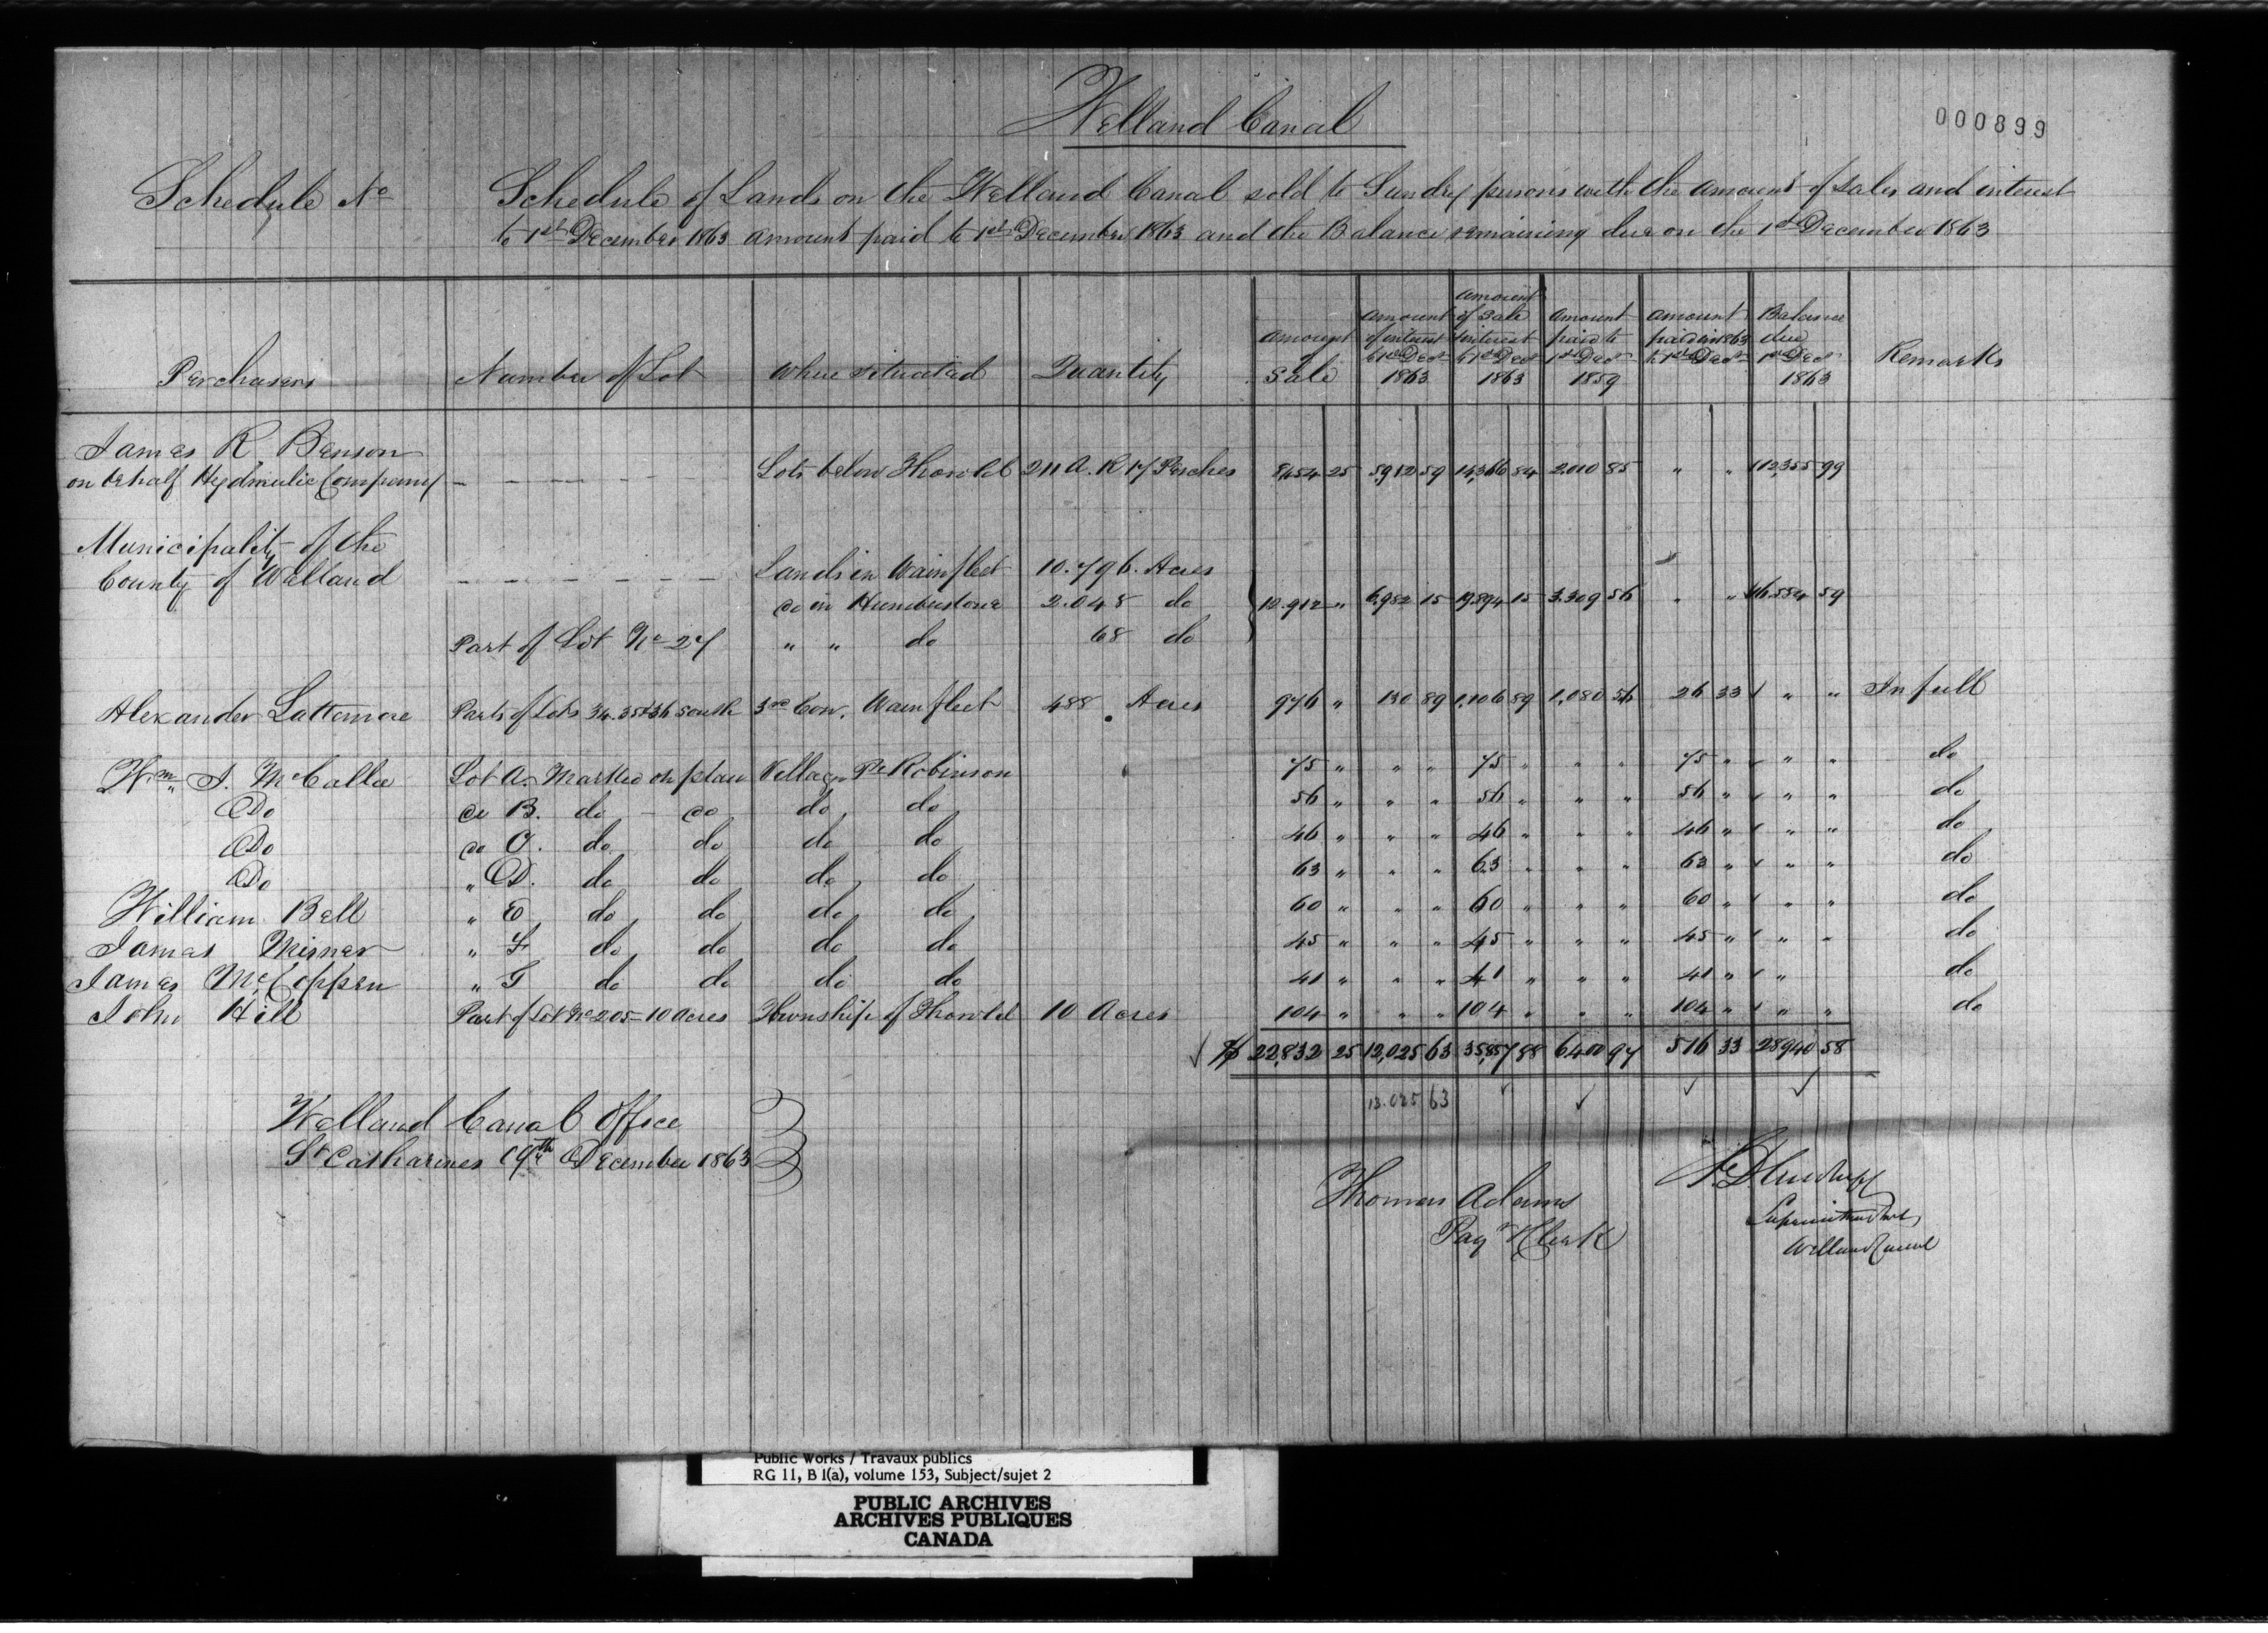 Welland Canal
000899
Schedule No
Schedule of Lands on the Welland Canal sold to Sundry persons with the amount of sales and interest
to 1st December 1863 amount paid to 1st December 1863 and the Balance remaining due on the 1st December 1863
Purchasers | Number of Lot | Where situated | Quantity | amount Sale | amount of interest to 1st Decr 1863 | amount of Sale & interest to 1st Decr 1863 | amount paid to 1st Decr 1859 | amount paid in 1863 to 1st Decr | Balance due 1st Decr 1863 | Remarks
James R. Benson
on behalf Hydraulic Company | – – – – – | Lots below Thorold | 211 A. R 17 Perches | 8,454 25 | 5,912 59 | 14,366 84 | 2,010 85 | " " | 12,355 99
Municipality of the
County of Welland | – – – – – – | Lands in Wainfleet | 10.796. Acres
do in Humberstone | 2.048 do | 10.912 " | 6,982 15 | 19,894 15 | 3.309 56 | " " | 16.584 59
Part of Lot No 27 | " " do | 68 do
Alexander Lattemore | Parts of Lots 34. 35 & 36 South | 3rd Con. Wainfleet | 488 Acres | 976 " | 130 89 | 1,106 89 | 1,080 56 | 26 33 | " " | In full
Wm J. McCalla | Lot A. Marked on plan | Village Pt Robinson | 75 " | " " | 75 " | " " | 75 " | " " | do
Do | do B. do do | do do | 56 " | " " | 56 " | " " | 56 " | " " | do
Do | do C. do do | do do | 46 " | " " | 46 " | " " | 46 " | " " | do
Do | " D. do do | do do | 63 " | " " | 63 " | " " | 63 " | " " | do
William Bell | " E do do | do do | 60 " | " " | 60 " | " " | 60 " | " " | do
James Misner | " F do do | do do | 45 " | " " | 45 " | " " | 45 " | " " | do
James McCoppen | " G do do | do do | 41 " | " " | 41 " | " " | 41 " | " | do
John Hill | Part of Lot No 205 – 10 Acres | Township of Thorold | 10 Acres | 104 " | " " | 104 " | " " | 104 " | " " | do
✓ $ 22,832 25 | 12,025 63 | 35,857 88 | 6400 97 | 516 33 | 28940 58
13.025 63 ✓ ✓ ✓ ✓
Welland Canal Office
St Catharines 19th December 1863
Thomas Adams
Pay Clerk
Superintendent
Welland Canal
Public Works / Travaux publics
RG 11, B 1(a), volume 153, Subject/sujet 2
PUBLIC ARCHIVES
ARCHIVES PUBLIQUES
CANADA